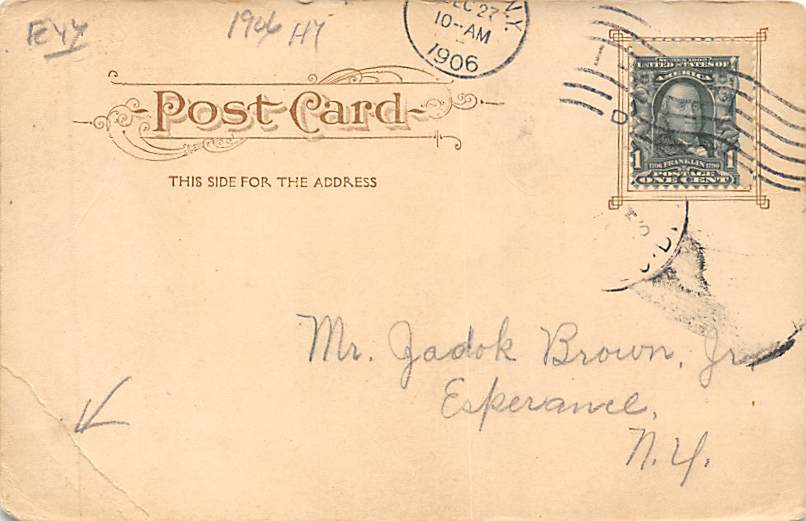 EYY
1906 HY
DEC 27
N.Y.
10-AM
1906
Post Card
THIS SIDE FOR THE ADDRESS
SERIES 1902
UNITED STATES OF
AMERICA
1 1
1706 FRANKLIN 1790
POSTAGE
ONE CENT
Mr. Zadok Brown, Jr.
Esperance,
N.Y.